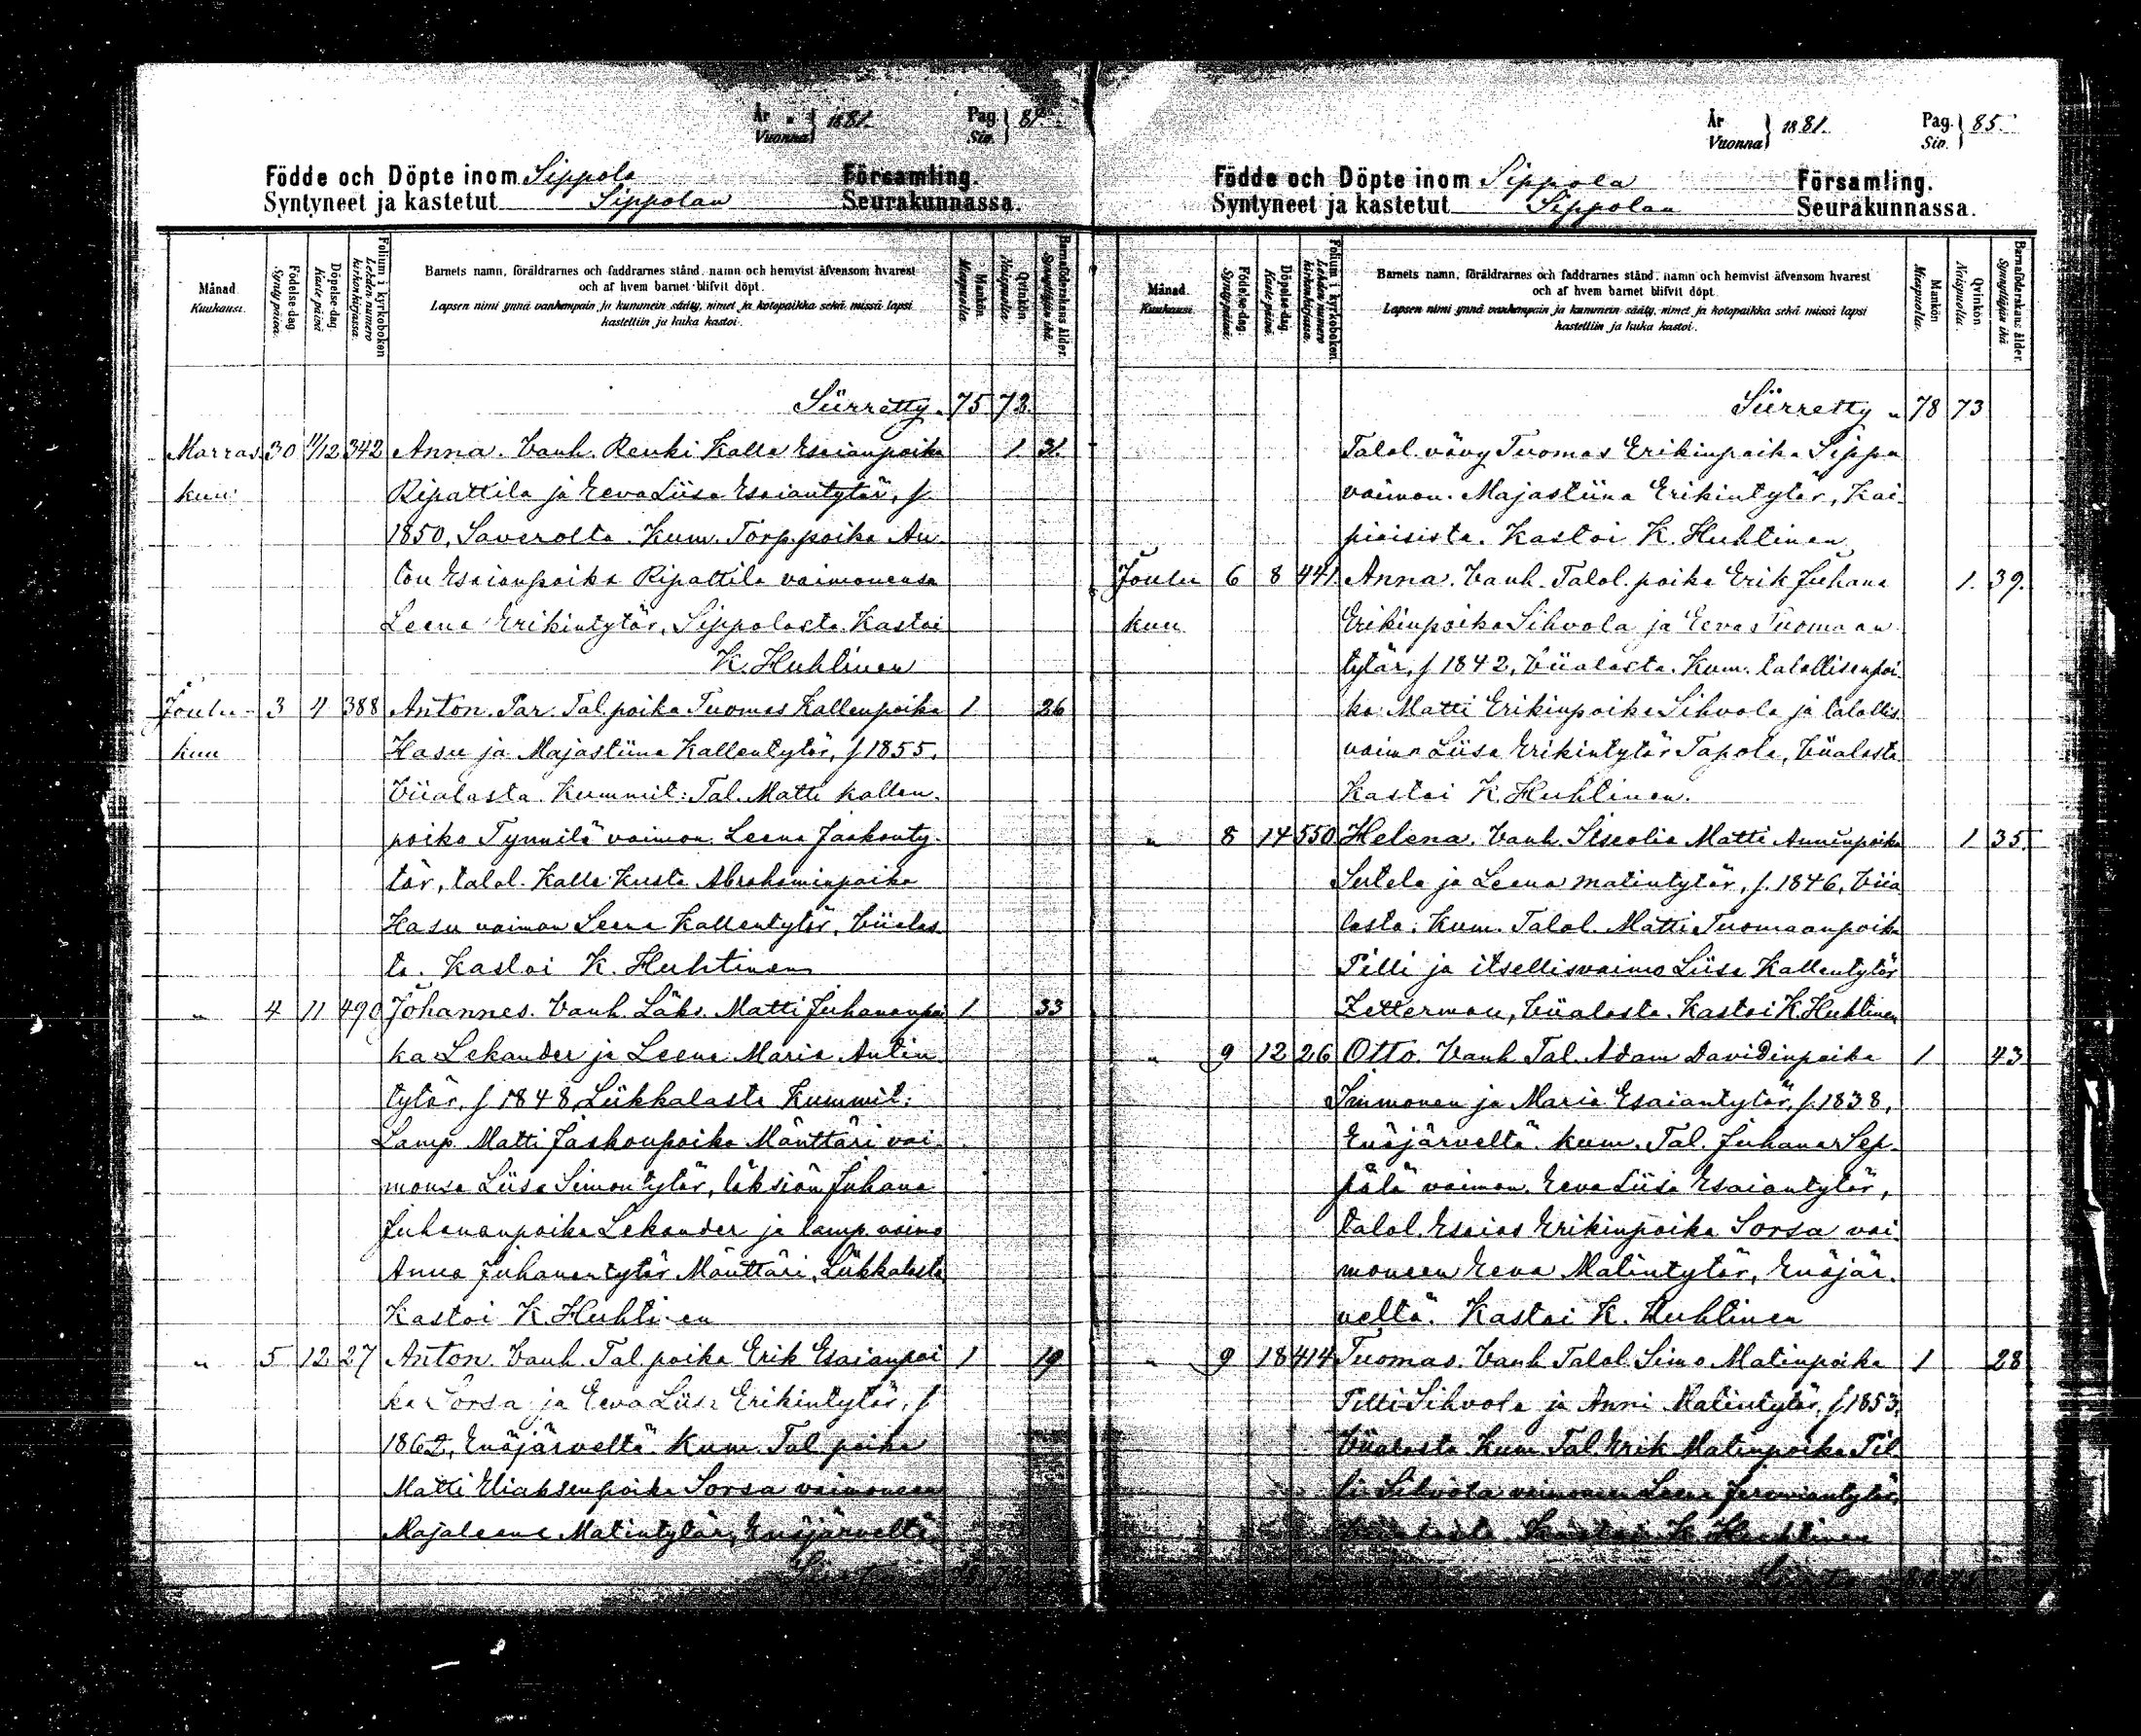 År Vuonna } 1881. Pag. Siv. } 84.
Födde och Döpte inom Sippola Församling.
Syntyneet ja kastetut Sippolan Seurakunnassa.
Månad. Kuukausi.
Födelse-dag. Syntypäivä.
Döpelse-dag. Kaste päivä
Folium i kyrkoboken Lehden numero kirkonkirjassa.
Barnets namn, föräldrarnes och faddrarnes stånd, namn och hemvist äfvensom hvarest
och af hvem barnet blifvit döpt.
Lapsen nimi ynnä vanhempain ja kummein sääty, nimet ja kotopaikka sekä missä lapsi
kastettiin ja kuka kastoi.
Mankön. Miespuolia.
Qvinkön. Naispuolia.
Barnaföderskans ålder. Synnyttäjän ikä.
Siirretty „ 75 72.
Marras 30 11/12 342 Anna. Vanh. Renki Kalle Esaianpoika 1 31.
kuu Ripattila ja Eeva Liisa Esaiantytär, s.
1850, Saverolta. Kum. Torp. poika An
ton Esaianpoika Ripattila vaimonensa
Leena Erikintytär, Sippolasta. Kastoi
K. Huhtinen
Joulu 3 4 388 Anton. Par. Tal. poika Tuomas Kallenpoika 1 26
kuu Hasu ja Majastiina Kallentytär, s 1855.
Viialasta. Kummit: Tal. Matti Kallen
poika Tynnilä vaimon. Leena Jaakonty
tär, talol. Kalle Kusta Abrahaminpoika
Hasu vaimon Leena Kallentytär, Viialas
ta. Kastoi K. Huhtinen
„ 4 11 490 Johannes. Vanh. Läks. Matti Juhananpoi 1 33
ka Lekander ja Leena Maria Antin
tytär, s 1848, Liikkalasta Kummit:
Lamp. Matti Jaakonpoika Mänttäri vai
monsa Liisa Simontytär, läksiön Juhana
Juhananpoika Lekander ja lamp. vaimo
Anna Juhanantytär Mänttäri, Liikkalasta
Kastoi K. Huhtinen
„ 5 12 27 Anton. Vanh. Tal. poika Erik Esaianpoi 1 19
ka Sorsa ja Eeva Liisa Erikintytär, s
1862, Enäjärveltä. Kum. Tal. poika
Matti Eliaksenpoika Sorsa vaimoneen
Majaleena Matintytär, Enäjärveltä.
År Vuonna } 1881. Pag. Siv. } 85.
Födde och Döpte inom Sippola Församling.
Syntyneet ja kastetut Sippolan Seurakunnassa.
Månad. Kuukausi.
Födelse-dag. Syntypäivä.
Döpelse-dag. Kaste päivä.
Folium i kyrkoboken. Lehden numero kirkonkirjassa.
Barnets namn, föräldrarnes och faddrarnes stånd, namn och hemvist äfvensom hvarest
och af hvem barnet blifvit döpt.
Lapsen nimi ynnä vanhempain ja kummein sääty, nimet ja kotopaikka sekä missä lapsi
kastettiin ja kuka kastoi.
Mankön Miespuolia.
Qvinkön. Naispuolia.
Barnaföderskans ålder. Synnyttäjän ikä
Siirretty „ 78 73
Talol. vävy Tuomas Erikinpoika Sippu
vaimon. Majastiina Erikintytär, Kai
piaisista. Kastoi K. Huhtinen
Joulu 6 8 441. Anna. Vanh. Talol. poika Erik Juhana 1. 39.
kuu Erikinpoika Sihvola ja Eeva Tuomaan
tytär, s 1842, Viialasta. Kum. talollisenpoi
ka Matti Erikinpoika Sihvola ja talollis
vaimo Liisa Erikintytär Tapola, Viialasta
Kastoi K. Huhtinen.
„ 8 14 550. Helena. Vanh. Itseolia Matti Anninpoika 1 35.
Sutela ja Leena Matintytär, s. 1846, Viia
lasta. Kum. Talol. Matti Tuomaanpoika
Tilli ja itsellisvaimo Liisa Kallentytär
Zetterman, Viialasta. Kastoi K. Huhtinen
„ 9 12 26 Otto. Vanh. Tal. Adam Davidinpoika 1 43
Immonen ja Maria Esaiantytär, s. 1838,
Enäjärveltä. Kum. Tal. Juhana Sep
pälä vaimon. Eeva Liisa Esaiantytär,
talol. Esaias Erikinpoika Sorsa vai
moneen Eeva Matintytär, Enäjär
veltä. Kastoi K. Huhtinen
„ 9 18 414 Tuomas. Vanh. Talol. Simo Matinpoika 1 28
Tilli Sihvola ja Anni Matintytär, s 1853,
Viialasta. Kum. Tal. Erik Matinpoika Til
li Sihvola vaimoneen Leena Jeremiantytär,
Viialasta. Kastoi K. Huhtinen